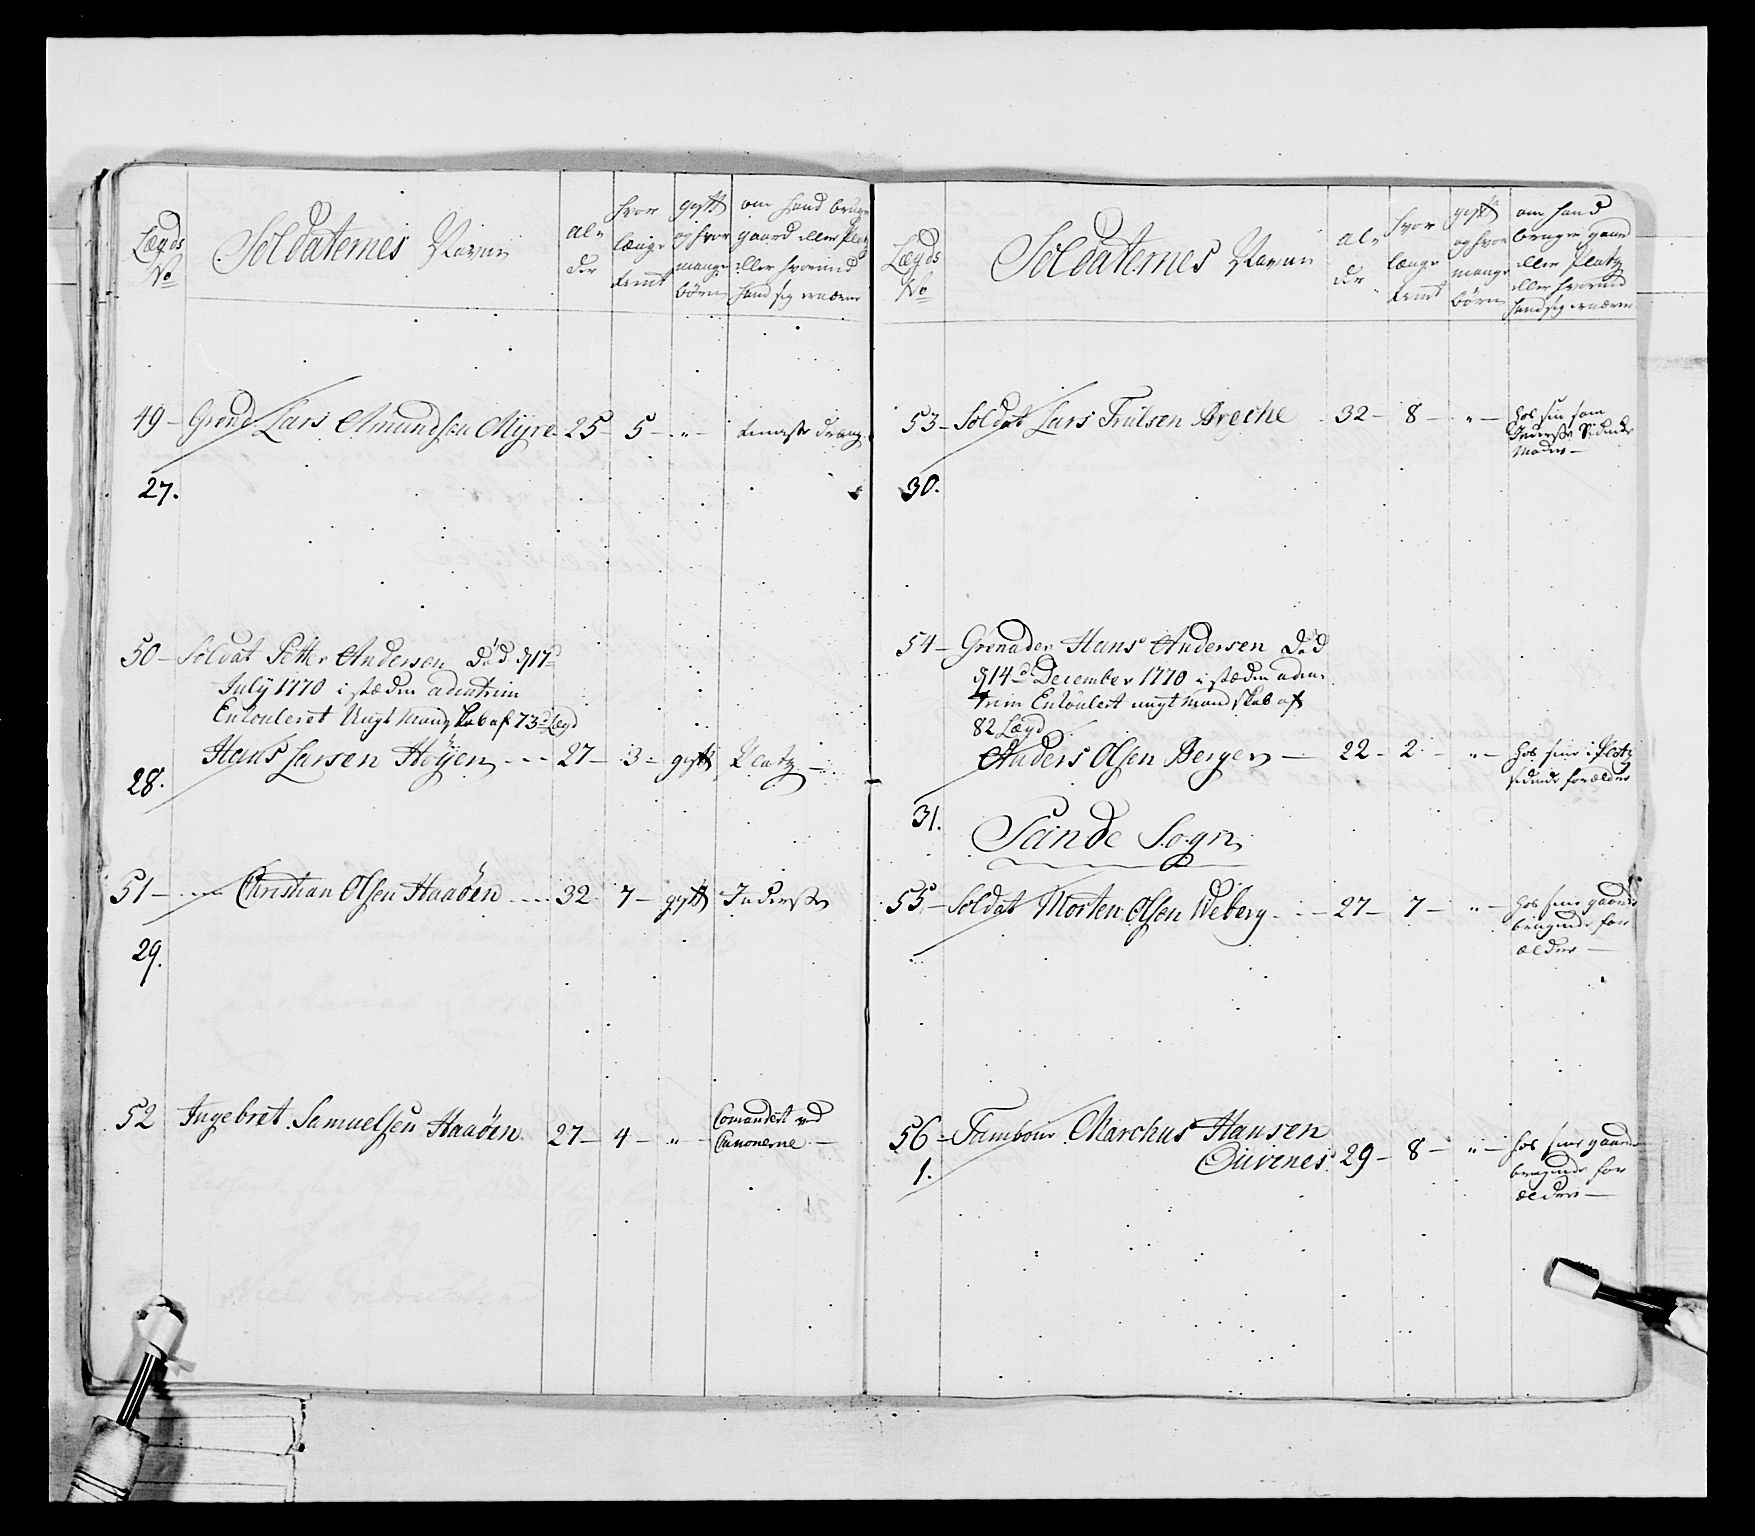 Lægds No
Soldaternes Navne
al-
der
hvor
længe
tient
gyft
og hvor
mange
børn
om hand bruger
gaard eller Platz
eller hvorved
hand sig ernærer
49 – Grend. Lars Amundsen Myre 25 – 5 – „ – tienneste dreng
27.
50 – Soldat Petter Andersen Død d 17d
July 1770 i stæden adentrim
Enrouleret Ungt Mandskab af 73d Lægd
Hans Larsen Höÿen – – – 27 – 3 – gyft Platz –
28.
51 – – – – Christian Olsen Haaöen – – – 32 – 7 – gyft Inderste
29.
52 Ingebret Samuelsen Haaöen. 27 – 4 – „ – Comandert ved
Canonerne –
Lægds No
Soldaternes Navne
al-
der
hvor
længe
tient
gyft
og hvor
mange
børn
om hand
bruger gaard
eller Platz
eller hvorved
hand sig ernærer
53 – Soldat Lars Trulsen Breche 32 – 8 – „ – hos sin som
Inderste Sidende
Moder –
30.
54 – Grenader Hans Andersen Død
d 14d December 1770 i stæden aden-
trim Enroulert ungt mandskab af
82 Lægd
Anders Olsen Bergen – 22 – 2 – „ – hos sine i Platz
sidende forældre
31.
Sande Sogn
55 – Soldat Morten Olsen Weberg – – – 27 – 7 – „ – hos sine gaard
brugende for
ældre –
56 – Tambour Marchus Hansen
Duvenes 29 – 8 – „ – hos sine gaard
brugende for
ældre –
1.